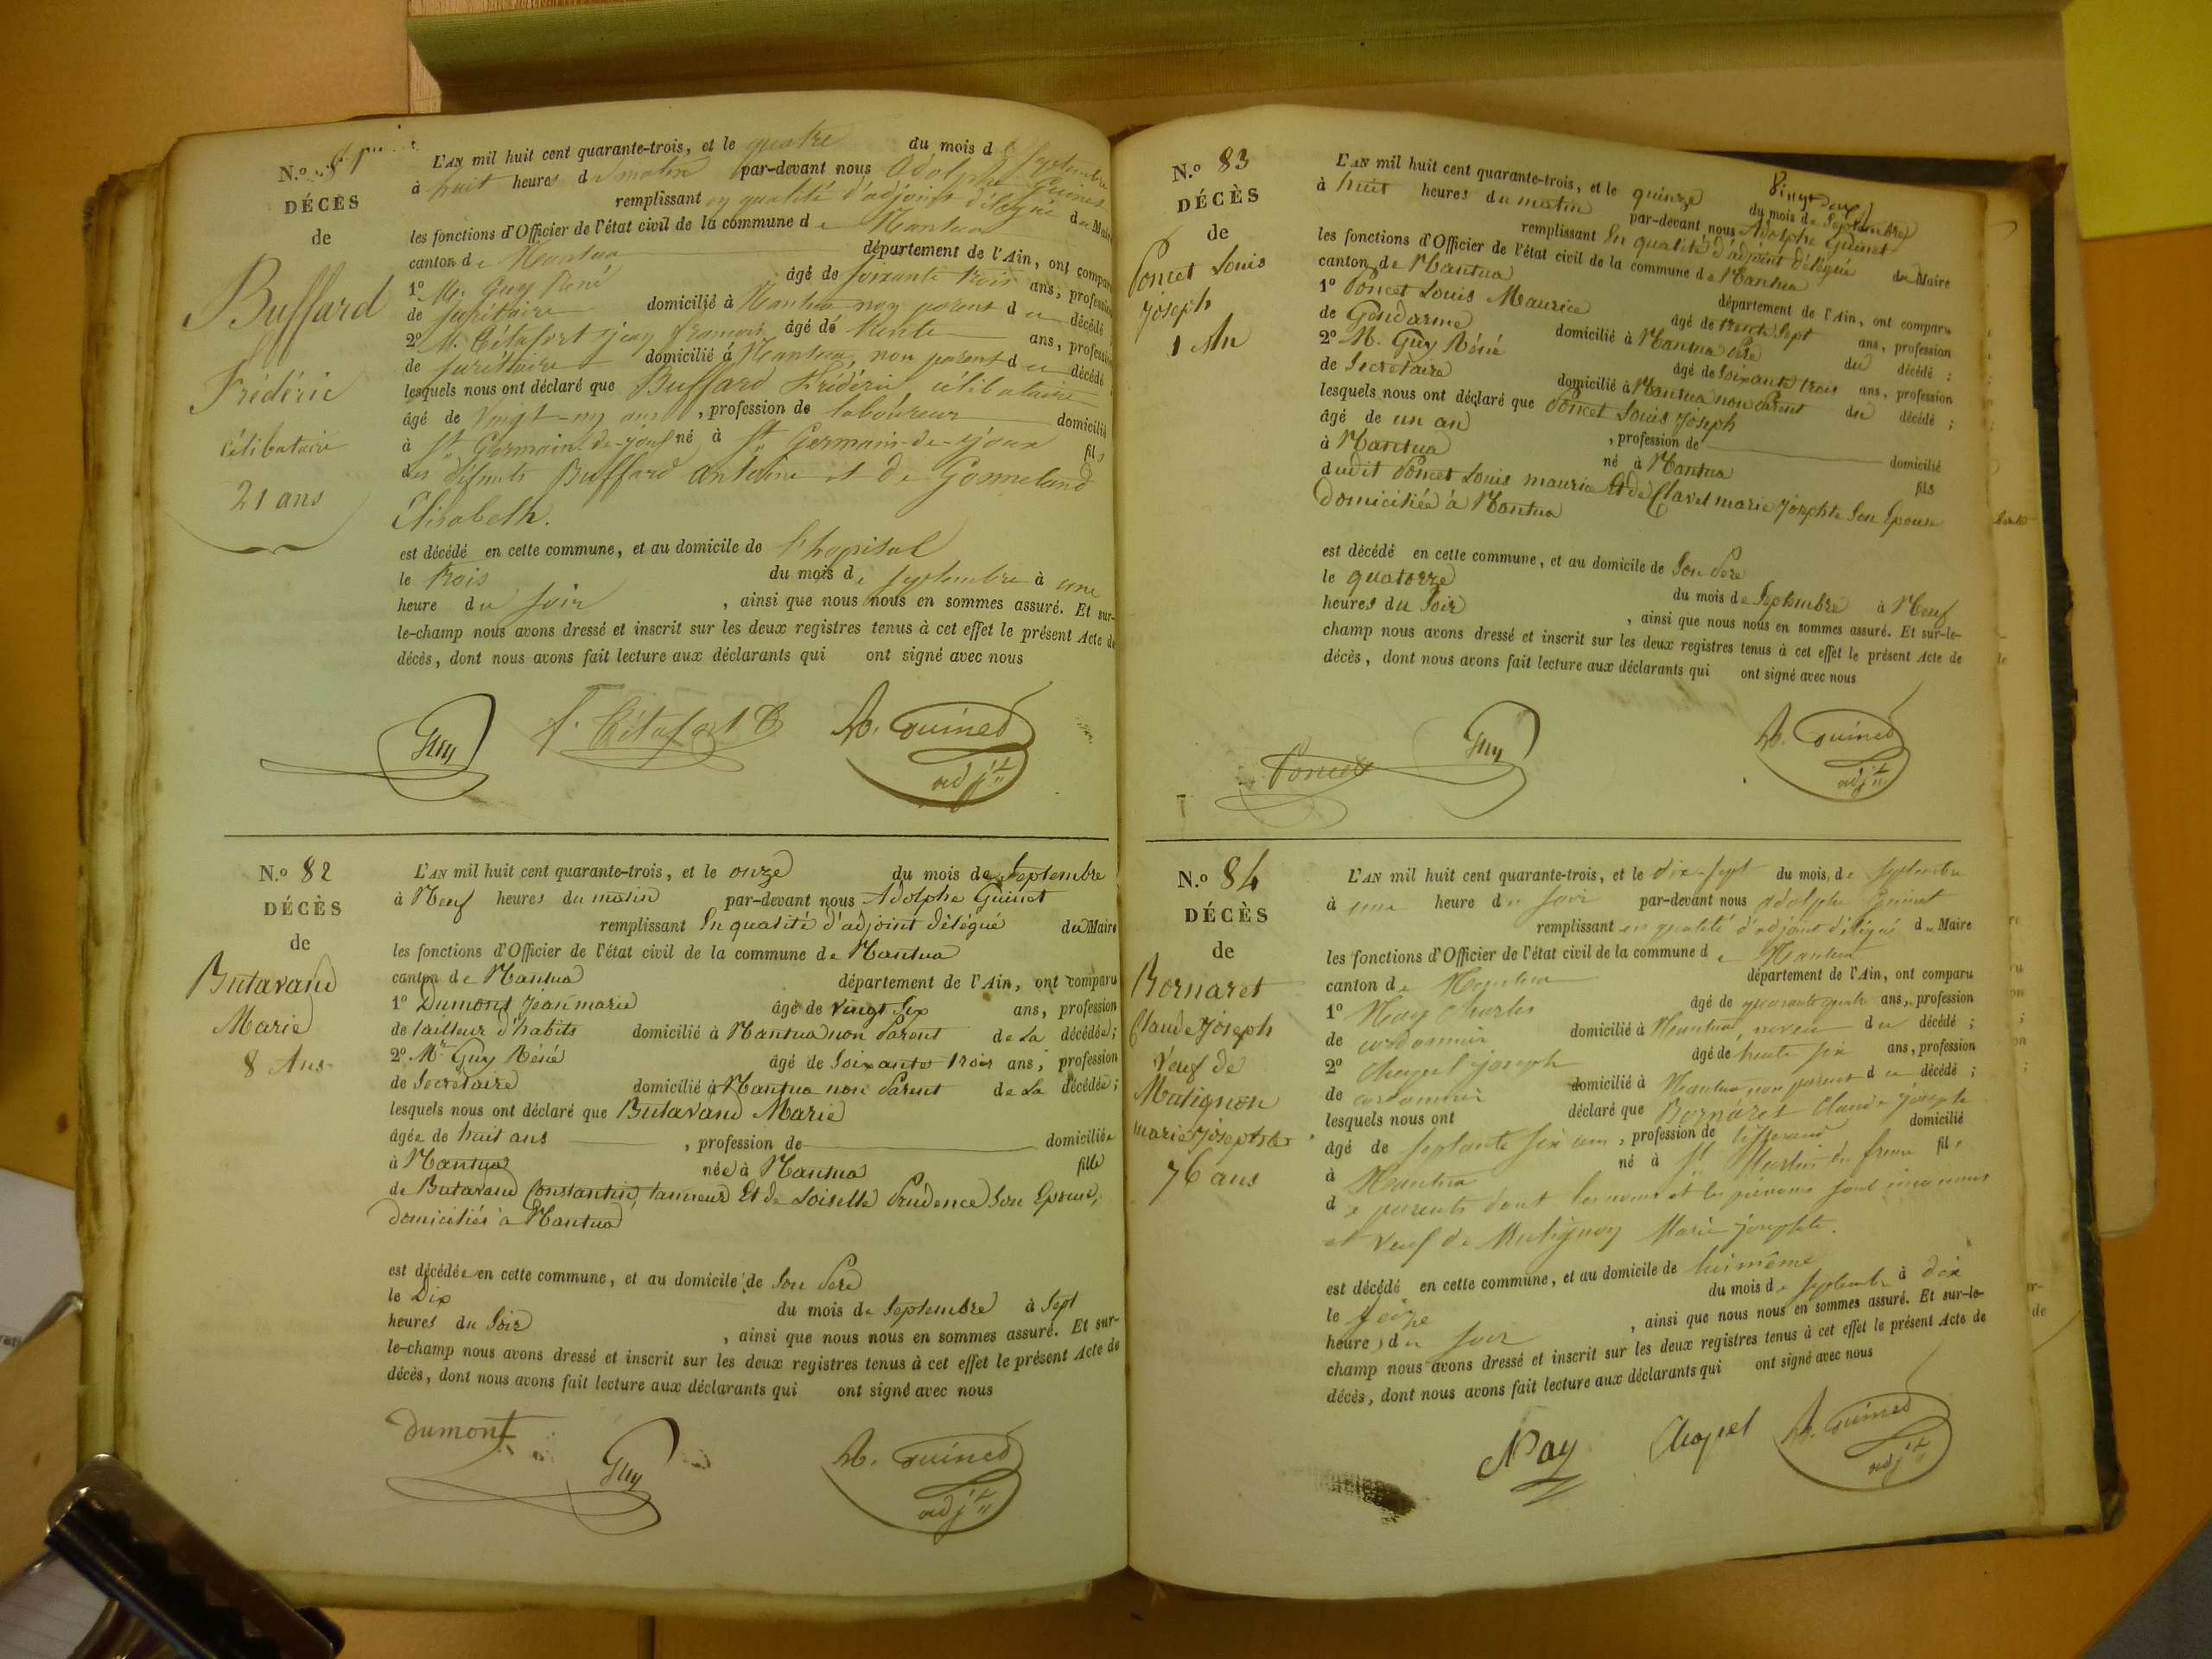 N.º 81
DÉCÈS
de
Buffard
Frédéric
célibataire
21 ans
L'AN mil huit cent quarante-trois, et le quatre du mois de Septembre
à huit heures du matin par-devant nous Adolphe Guinet
remplissant en qualité d'adjoint délégué du Maire
les fonctions d'Officier de l'état civil de la commune de Nantua
canton de Nantua département de l'Ain, ont comparu
1º Mr. Guy Réné âgé de soixante trois ans, profession
de secrétaire domicilié à Nantua non parent du décédé
2º M. Cétafort Jean françois âgé de trente ans, profession
de secrétaire domicilié à Nantua, non parent du décédé
lesquels nous ont déclaré que Buffard Frédéric célibataire
âgé de vingt-un ans, profession de laboureur domicilié
à St Germain-de-Joux né à St Germain-de-Joux fils
des défunts Buffard Antoine et de Gonneland
Élisabeth.
est décédé en cette commune, et au domicile de l'hopital
le trois du mois de septembre à une
heure du soir, ainsi que nous nous en sommes assuré. Et sur-
le-champ nous avons dressé et inscrit sur les deux registres tenus à cet effet le présent Acte de
décès, dont nous avons fait lecture aux déclarants qui ont signé avec nous
Guy f. Cétafort A. Guinet
adjt
N.º 82
DÉCÈS
de
Butavand
Marie
8 Ans
L'AN mil huit cent quarante-trois, et le onze du mois de Septembre
à Neuf heures du matin par-devant nous Adolphe Guinet
remplissant En qualité d'adjoint délégué du Maire
les fonctions d'Officier de l'état civil de la commune de Nantua
canton de Nantua département de l'Ain, ont comparu
1º Dumont Jean marie âgé de vingt Six ans, profession
de tailleur d'habits domicilié à Nantua non Parent de La décédée;
2º Mr Guy Réné âgé de Soixante trois ans, profession
de Secrétaire domicilié à Nantua non Parent de La décédée;
lesquels nous ont déclaré que Butavand Marie
âgée de huit ans, profession de domiciliée
à Nantua née à Nantua fille
de Butavand Constantin, tanneur Et de Loiselle Prudence Son Epouse,
domiciliés à Nantua
est décédée en cette commune, et au domicile de Son Père
le Dix du mois de Septembre à Sept
heures du Soir, ainsi que nous nous en sommes assuré. Et sur-
le-champ nous avons dressé et inscrit sur les deux registres tenus à cet effet le présent Acte de
décès, dont nous avons fait lecture aux déclarants qui ont signé avec nous
Dumont Guy A. Guinet
adjt
N.º 83
DÉCÈS
de
Poncet Louis
Joseph
1 An
L'AN mil huit cent quarante-trois, et le quinze du mois de Septembre
à huit heures du matin par-devant nous Adolphe Guinet
remplissant En qualité d'adjoint délégué du Maire
les fonctions d'Officier de l'état civil de la commune de Nantua
canton de Nantua département de l'Ain, ont comparu
1º Poncet Louis Maurice âgé de trente Sept ans, profession
de Gendarme domicilié à Nantua Père du décédé;
2º M. Guy Réné âgé de Soixante trois ans, profession
de Secrétaire domicilié à Nantua non Parent du décédé;
lesquels nous ont déclaré que Poncet Louis Joseph
âgé de un an, profession de domicilié
à Nantua né à Nantua fils
dudit Poncet Louis maurice Et de Clavel marie Josephte Son Epouse
Domiciliée à Nantua
est décédé en cette commune, et au domicile de Son Père
le quatorze du mois de Septembre à Neuf
heures du Soir, ainsi que nous nous en sommes assuré. Et sur-le-
champ nous avons dressé et inscrit sur les deux registres tenus à cet effet le présent Acte de
décès, dont nous avons fait lecture aux déclarants qui ont signé avec nous
Poncet Guy A. Guinet
adjt
N.º 84
DÉCÈS
de
Bornaret
Claude Joseph
Veuf de
Matignon
marie Josephte
76 ans
L'AN mil huit cent quarante-trois, et le dix-sept du mois de septembre
à une heure du soir par-devant nous Adolphe Guinet
remplissant en qualité d'adjoint délégué du Maire
les fonctions d'Officier de l'état civil de la commune de Nantua
canton de Nantua département de l'Ain, ont comparu
1º Nay Charles âgé de quarante quatre ans, profession
de cordonnier domicilié à Nantua, neveu du décédé;
2º Chapel joseph âgé de trente six ans, profession
de cordonnier domicilié à Nantua non parent du décédé;
lesquels nous ont déclaré que Bornaret Claude Joseph
âgé de septante six ans, profession de tisserand domicilié
à Nantua né à St Martin du frene fils
de parents dont les noms et les prénoms sont inconnus
et veuf de Matignon Marie josephte.
est décédé en cette commune, et au domicile de lui même
le seize du mois de septembre à dix
heures du soir, ainsi que nous nous en sommes assuré. Et sur-le-
champ nous avons dressé et inscrit sur les deux registres tenus à cet effet le présent Acte de
décès, dont nous avons fait lecture aux déclarants qui ont signé avec nous
Nay Chapel A. Guinet
adjt